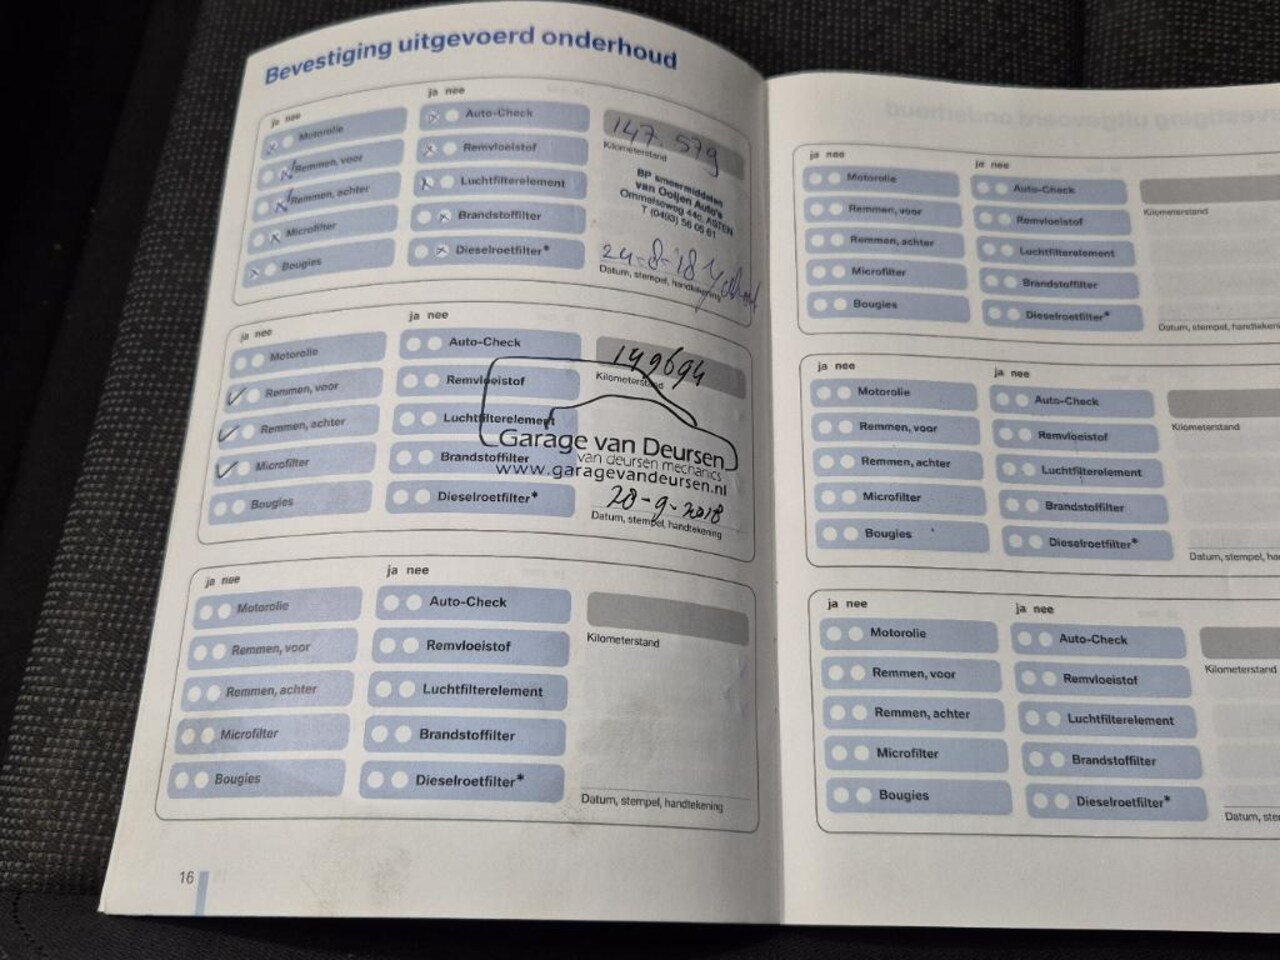 Bevestiging uitgevoerd onderhoud
ja nee
Motorolie
Remmen, voor
Remmen, achter
Microfilter
Bougies
ja nee
Auto-Check
Remvloeistof
Luchtfilterelement
Brandstoffilter
Dieselroetfilter*
147.579
Kilometerstand
BP smeermiddelen
van Ooijen Auto's
Ommelseweg 44c, ASTEN
24-8-'18
Datum, stempel, handtekening
ja nee
Motorolie
Remmen, voor
Remmen, achter
Microfilter
Bougies
ja nee
Auto-Check
Remvloeistof
Luchtfilterelement
Brandstoffilter
Dieselroetfilter*
149694
Kilometerstand
Garage van Deursen
van deursen mechanics
www.garagevandeursen.nl
20-9-2018
Datum, stempel, handtekening
ja nee
Motorolie
Remmen, voor
Remmen, achter
Microfilter
Bougies
ja nee
Auto-Check
Remvloeistof
Luchtfilterelement
Brandstoffilter
Dieselroetfilter*
Kilometerstand
Datum, stempel, handtekening
16
ja nee
Motorolie
Remmen, voor
Remmen, achter
Microfilter
Bougies
ja nee
Auto-Check
Remvloeistof
Luchtfilterelement
Brandstoffilter
Dieselroetfilter*
Kilometerstand
Datum, stempel, handteken
ja nee
Motorolie
Remmen, voor
Remmen, achter
Microfilter
Bougies
ja nee
Auto-Check
Remvloeistof
Luchtfilterelement
Brandstoffilter
Dieselroetfilter*
Kilometerstand
Datum, stempel, ha
ja nee
Motorolie
Remmen, voor
Remmen, achter
Microfilter
Bougies
ja nee
Auto-Check
Remvloeistof
Luchtfilterelement
Brandstoffilter
Dieselroetfilter*
Kilometerstand
Datum, ste